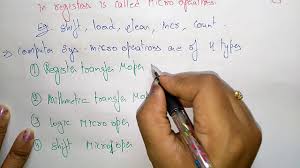 In registers is called Micro operations.
Eg: shift, load, clear, incr, count
→ Computer Sys - micro operations are of 4 types
① Register transfer Moper
② Arithmetic transfer Mo
③ logic Microoper
④ shift Microoper